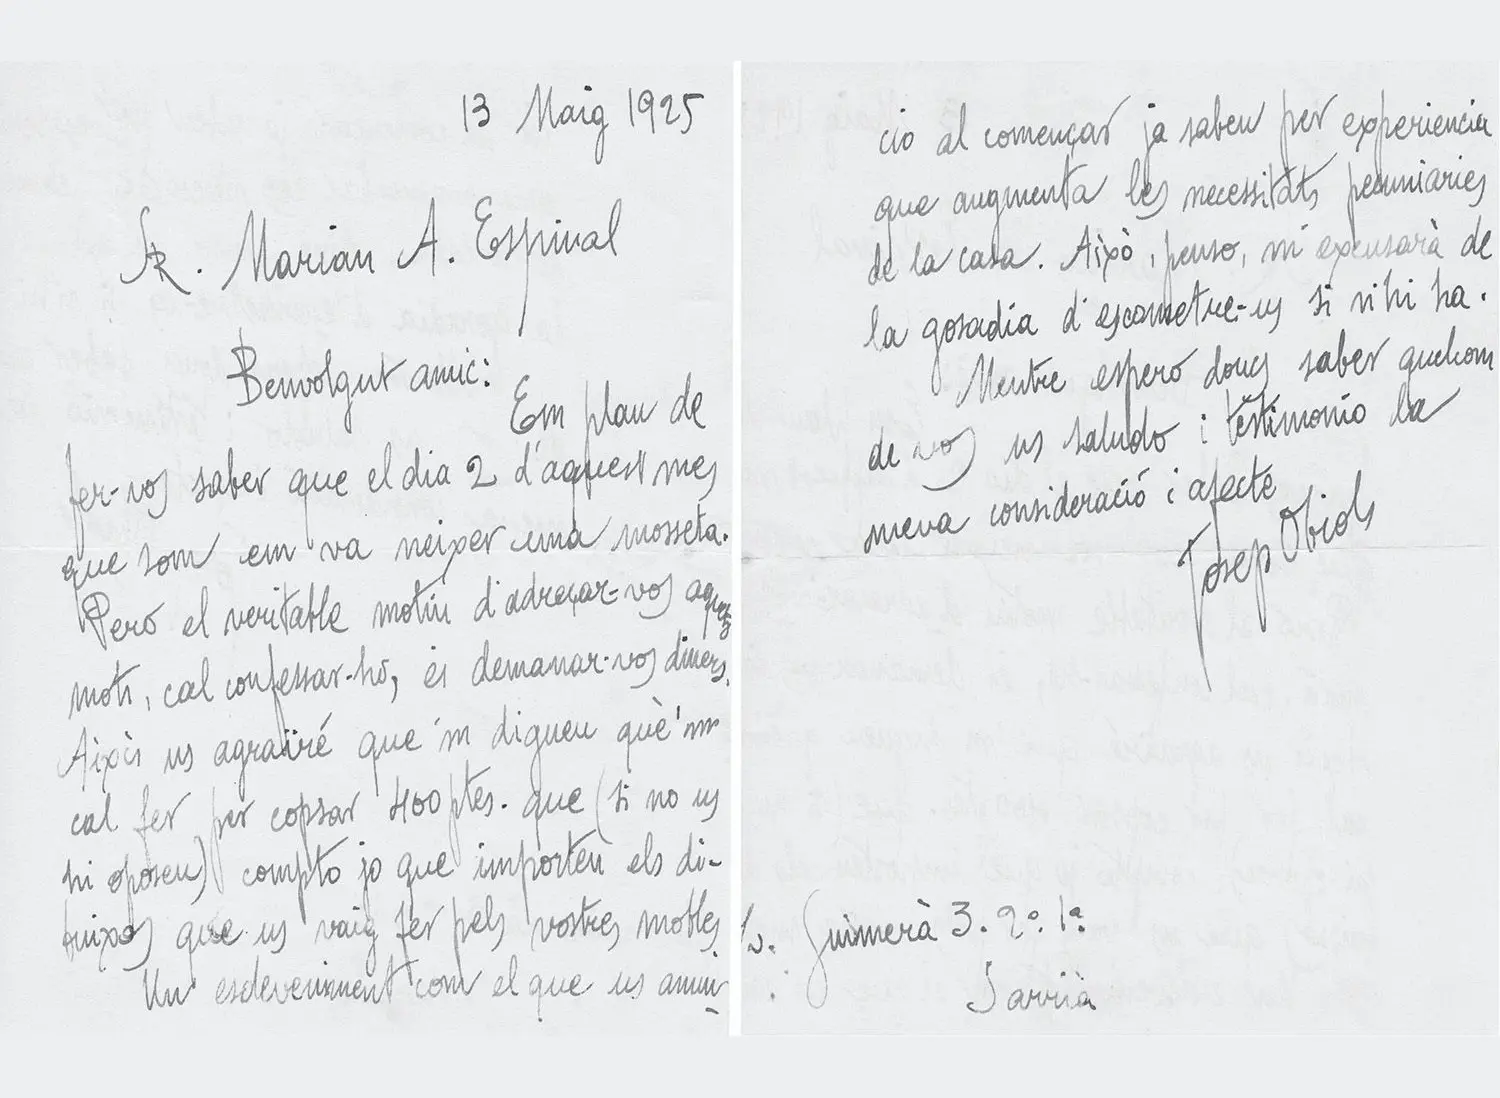 13 Maig 1925
SR. Marian A. Espinal
Benvolgut amic:
Em plau de
fer-vos saber que el dia 2 d'aquest mes
que som em va neixer una mosseta.
Però el veritable motiu d'adreçar-vos aquests
mots, cal confessar-ho, és demanar-vos diners.
Aixís us agraïré que'm digueu què'm
cal fer per copsar 400 ptes. que (si no us
hi oposeu) compto jo que importen els di-
buixos que us vaig fer pels vostres mobles
Un esdeveniment com el que us anun-
cio al començar ja sabeu per experiencia
que augmenta les necessitats pecuniaries
de la casa. Això, penso, m'excusarà de
la gosadia d'escometre-us si n'hi ha.
Mentre espero doncs saber quelcom
de vos us saludo i testimonio la
meva consideració i afecte
Josep Obiols
Guimerà 3. 2º. 1ª
Sarrià